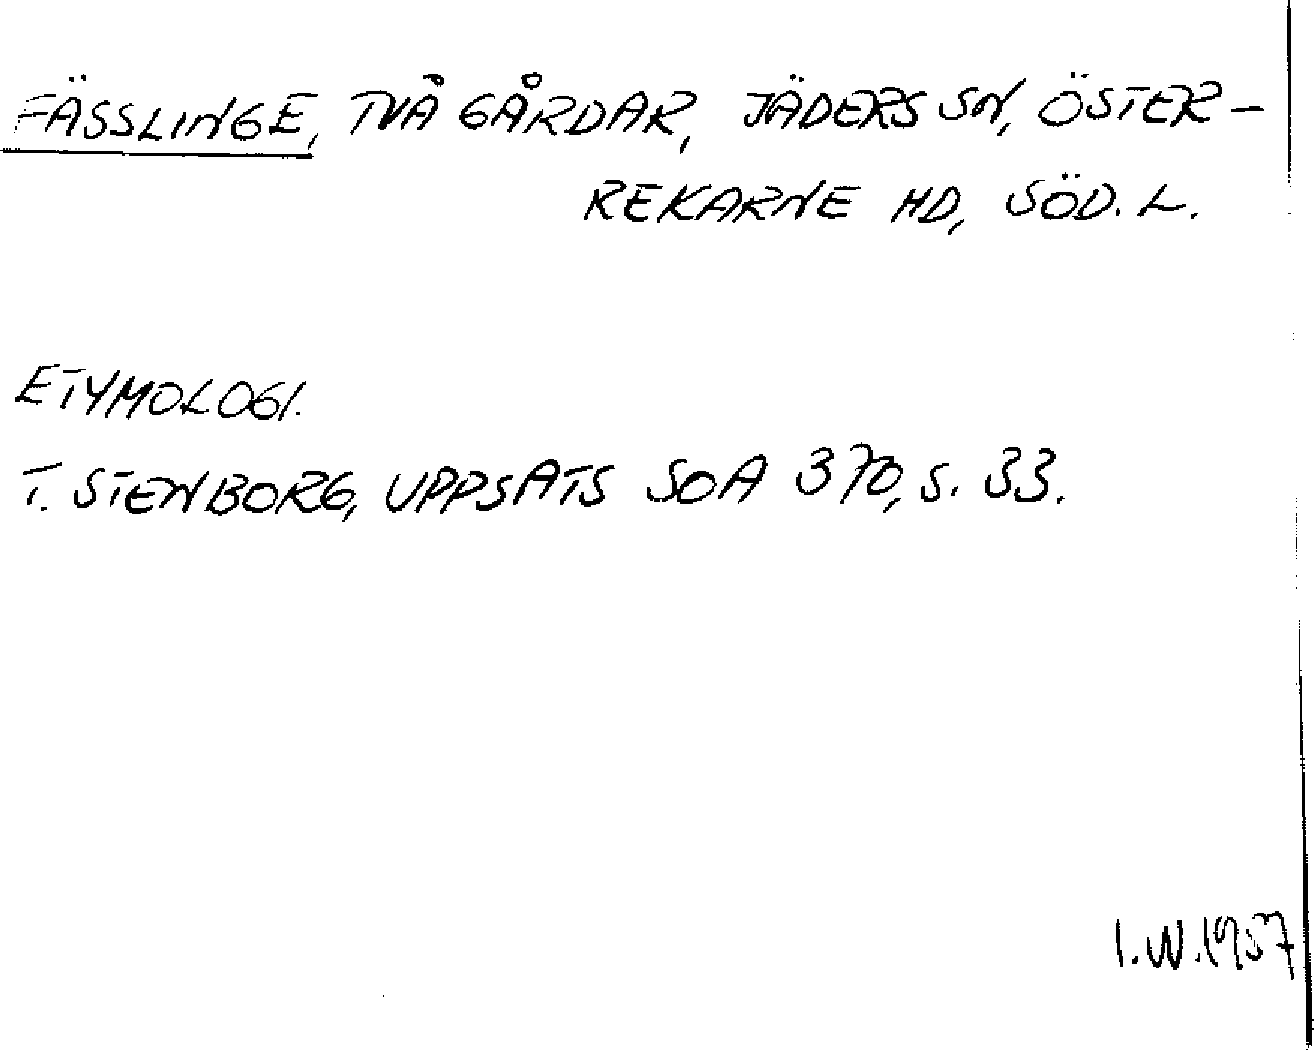 FÄSSLINGE, TVÅ GÅRDAR, JÄDERS SN, ÖSTER-
REKARNE HD, SÖD. L.
ETYMOLOGI.
T. STENBORG, UPPSATS SOA 370, S. 33.
I.W.1957